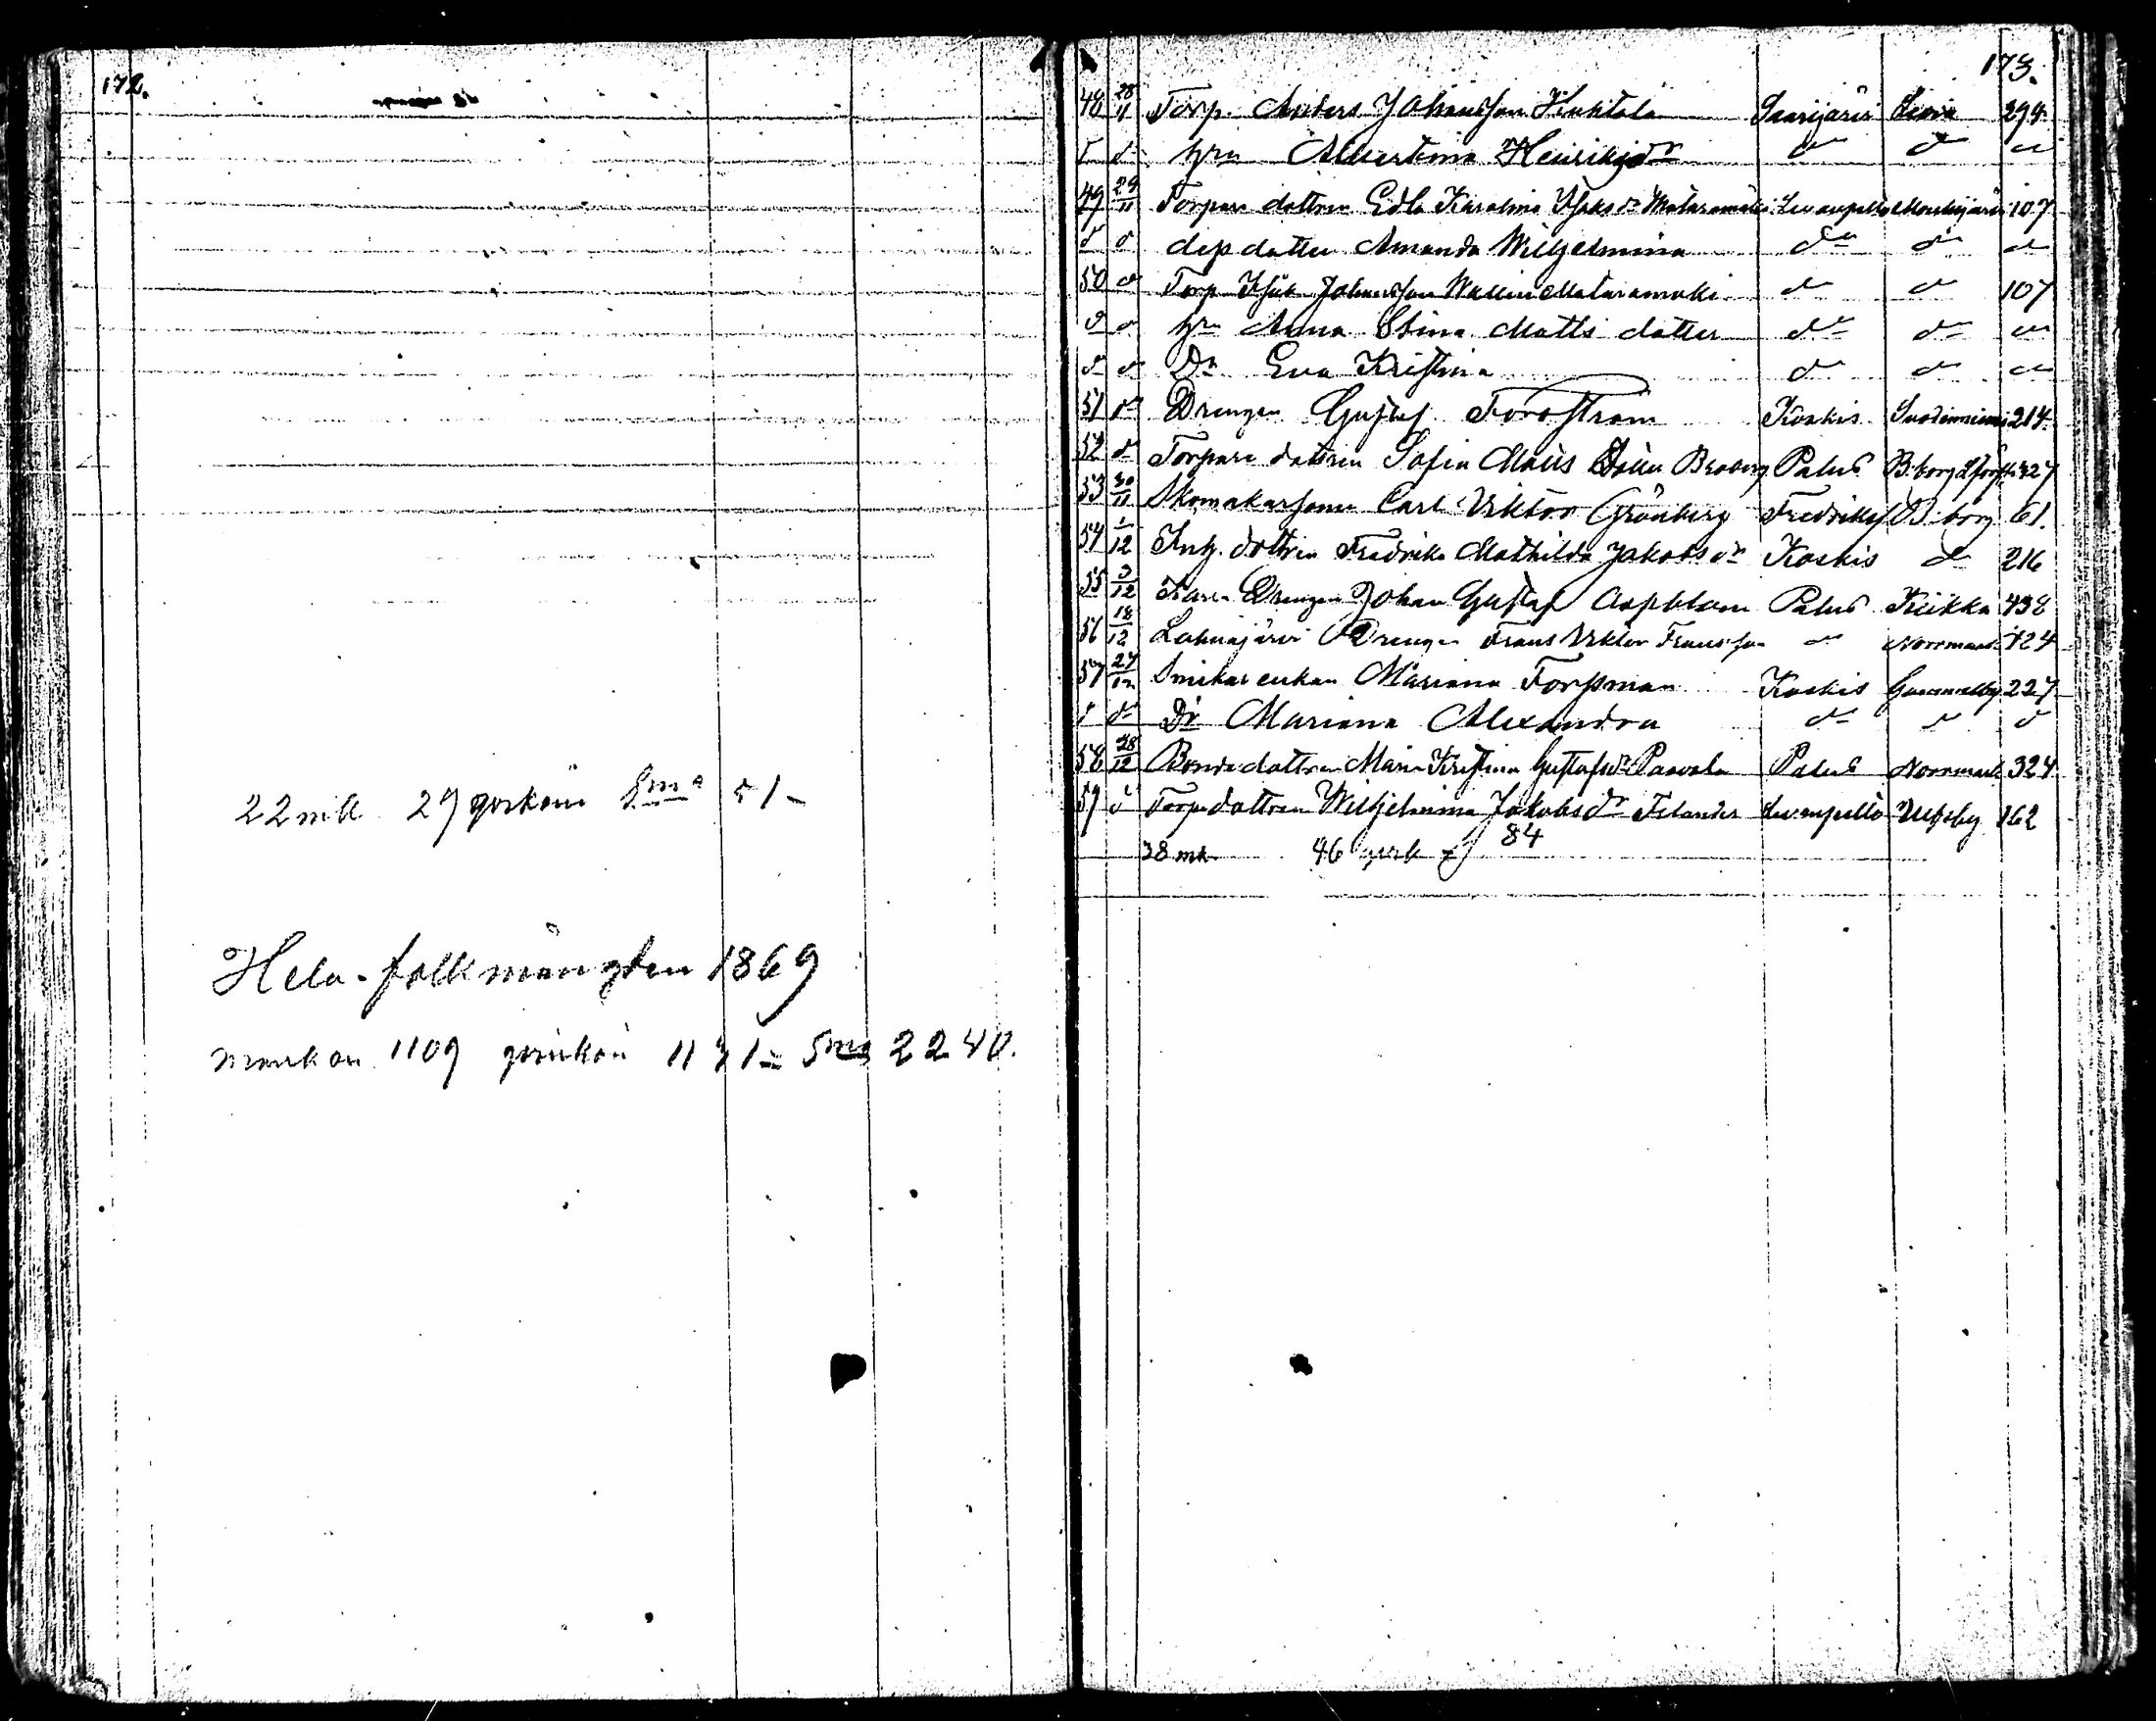 172.
22 mk 29 qvinkön Sma 51
Hela folkmängden 1869
mankön 1109 qvinkön 1131 = Sma 2240.
173.
48 28/11 Torp. Anders Johansson Huhtala Saarijärvi Lavia 294
d d hu Albertina Henriksdr d d d
49 29/11 Torpare dottren Edla Karolina Isaksdr Mataramäki Levanpelto Mouhijärvi 107
d d dess dotter Amanda Wilhelmina do d d
50 d Torp Isak Johansson Wallin Mataramäki d d 107
d d hu Anna Stina Matts dotter do d d
d d Dr Eva Kristina d d d
51 d Drengen Gustaf Forsström Koskis Suodenniemi 214
52 d Torpare dottren Sofia Maijs Broberg Palus B:borg 427
53 30/11 Skomakarsonen Carl Viktor Grönberg Fredriksf B:borg 61.
54 1/12 Inh. dottren Fredrika Mathilda Jakobsdr Koskis d 216
55 3/12 Drengen Johan Gustaf Aspblom Palus Kiikka 438
56 18/12 Lahnajärvi Drengen Frans Viktor Fransson d Norrmark 424
57 27/12 Smeks enkan Mariana Forsman Koskis Gammelby 227
d d Dr Mariana Alexandra d d d
58 28/12 Bonde dottren Maria Kristina Gustafsdr Paavola Palus Norrmark 324
59 d Torp dottren Wilhelmina Jakobsdr Felander Levanpelto Ulfsby 162
38 mk 46 qvk 84